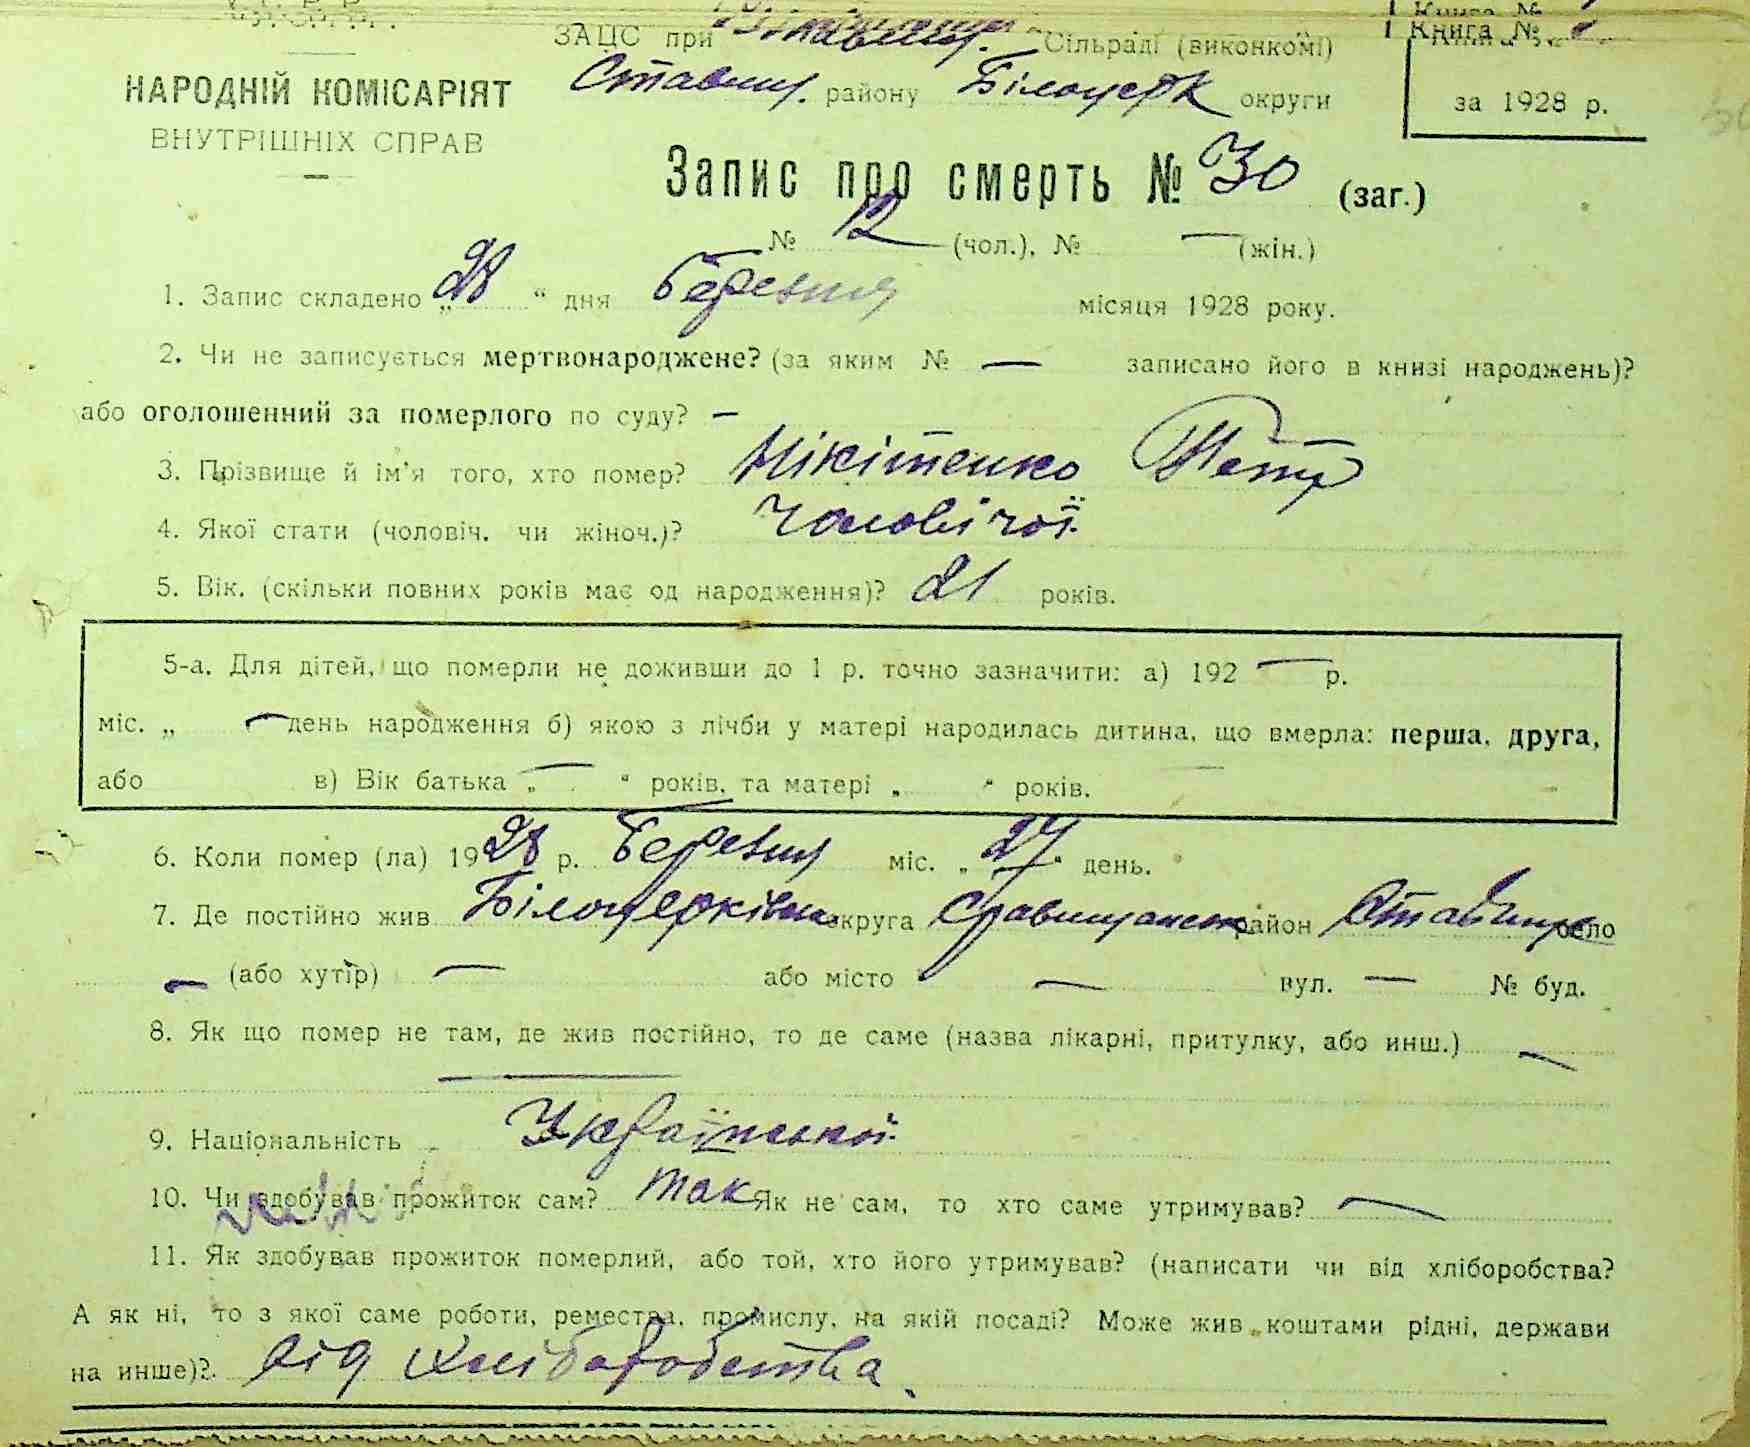 У.С.Р.Р.
Книга №
ЗАЦС при Ставищ. Сільраді (виконкомі)
Книга №
НАРОДНІЙ КОМІСАРІЯТ
Ставищ. району Білоцерк округи
за 1928 р.
ВНУТРІШНІХ СПРАВ
Запис про смерть № 30 (заг.)
№ 12 (чол.), № — (жін.)
1. Запис складено „28“ дня Березня місяця 1928 року.
2. Чи не записується мертвонароджене? (за яким № — записано його в книзі народжень)?
або оголошенний за померлого по суду? —
3. Прізвище й ім'я того, хто помер? Нікітенко Петр
4. Якої стати (чоловіч. чи жіноч.)? Чоловічої
5. Вік. (скільки повних років має од народження)? 21 років.
5-а. Для дітей, що померли не доживши до 1 р. точно зазначити: а) 192 — р.
міс. „ — день народження б) якою з лічби у матері народилась дитина, що вмерла: перша, друга,
або в) Вік батька „ — “ років, та матері „ “ років.
6. Коли помер (ла) 1928 р. Березня міс. „27“ день.
7. Де постійно жив Білоцерківськ округа Ставищанськ район Ставище село
— (або хутір) — або місто — вул. — № буд.
8. Як що помер не там, де жив постійно, то де саме (назва лікарні, притулку, або инш.) —
—
9. Національність Української
10. Чи здобував прожиток сам? Так Як не сам, то хто саме утримував? —
11. Як здобував прожиток померлий, або той, хто його утримував? (написати чи від хліборобства?
А як ні, то з якої саме роботи, ремества, промислу, на якій посаді? Може жив коштами рідні, держави
на инше)? від хліборобства.